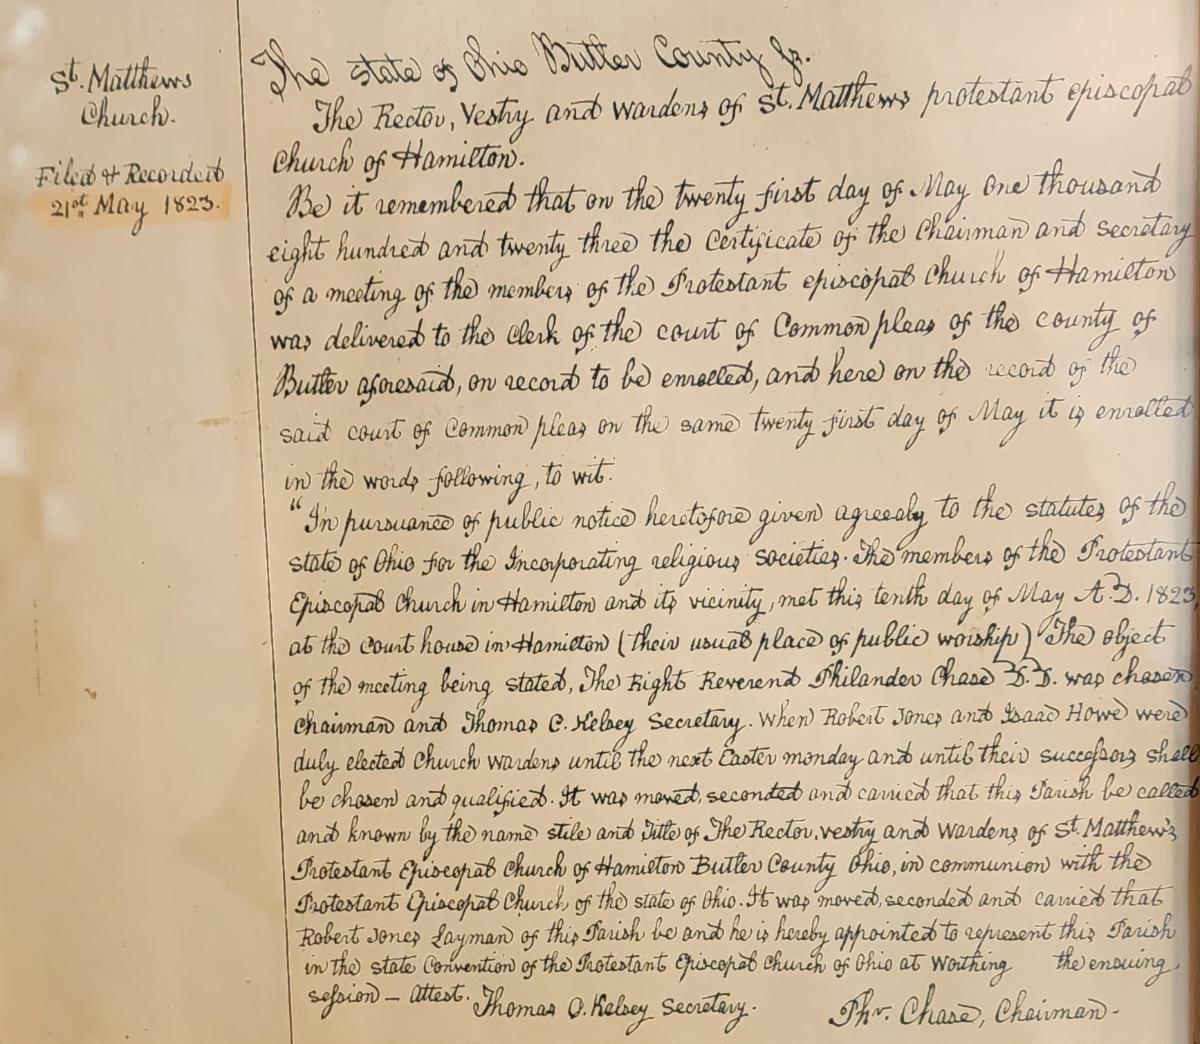 St. Matthews
Church.
Filed & Recorded
21st May 1823.
The state of Ohio Butler County Ss.
The Rector, Vestry and Wardens of St. Matthews protestant episcopal
Church of Hamilton.
Be it remembered that on the twenty first day of May One thousand
eight hundred and twenty three the Certificate of the Chairman and secretary
of a meeting of the members of the Protestant episcopal Church of Hamilton
was delivered to the Clerk of the court of Common pleas of the county of
Butler aforesaid, on record to be enrolled, and here on the record of the
said court of Common pleas on the same twenty first day of May it is enrolled
in the words following, to wit.
"In pursuance of public notice heretofore given agreeably to the statutes of the
state of Ohio for the Incorporating religious societies. The members of the Protestant
Episcopal Church in Hamilton and its vicinity, met this tenth day of May A.D. 1823,
at the court house in Hamilton (their usual place of public worship) The object
of the meeting being stated, The Right Reverend Philander Chase D.D. was chosen
Chairman and Thomas C. Kelsey Secretary. When Robert Jones and Isaac Howe were
duly elected Church wardens until the next Easter monday and until their successors shall
be chosen and qualified. It was moved, seconded and carried that this Parish be called
and known by the name stile and Title of The Rector, vestry and Wardens of St. Matthew's
Protestant Episcopal Church of Hamilton Butler County Ohio, in communion with the
Protestant Episcopal Church of the state of Ohio. It was moved, seconded and carried that
Robert Jones Layman of this Parish be and he is hereby appointed to represent this Parish
in the state Convention of the Protestant Episcopal Church of Ohio at Worthing the ensuing
session - Attest. Thomas O. Kelsey Secretary. Phr. Chase, Chairman -